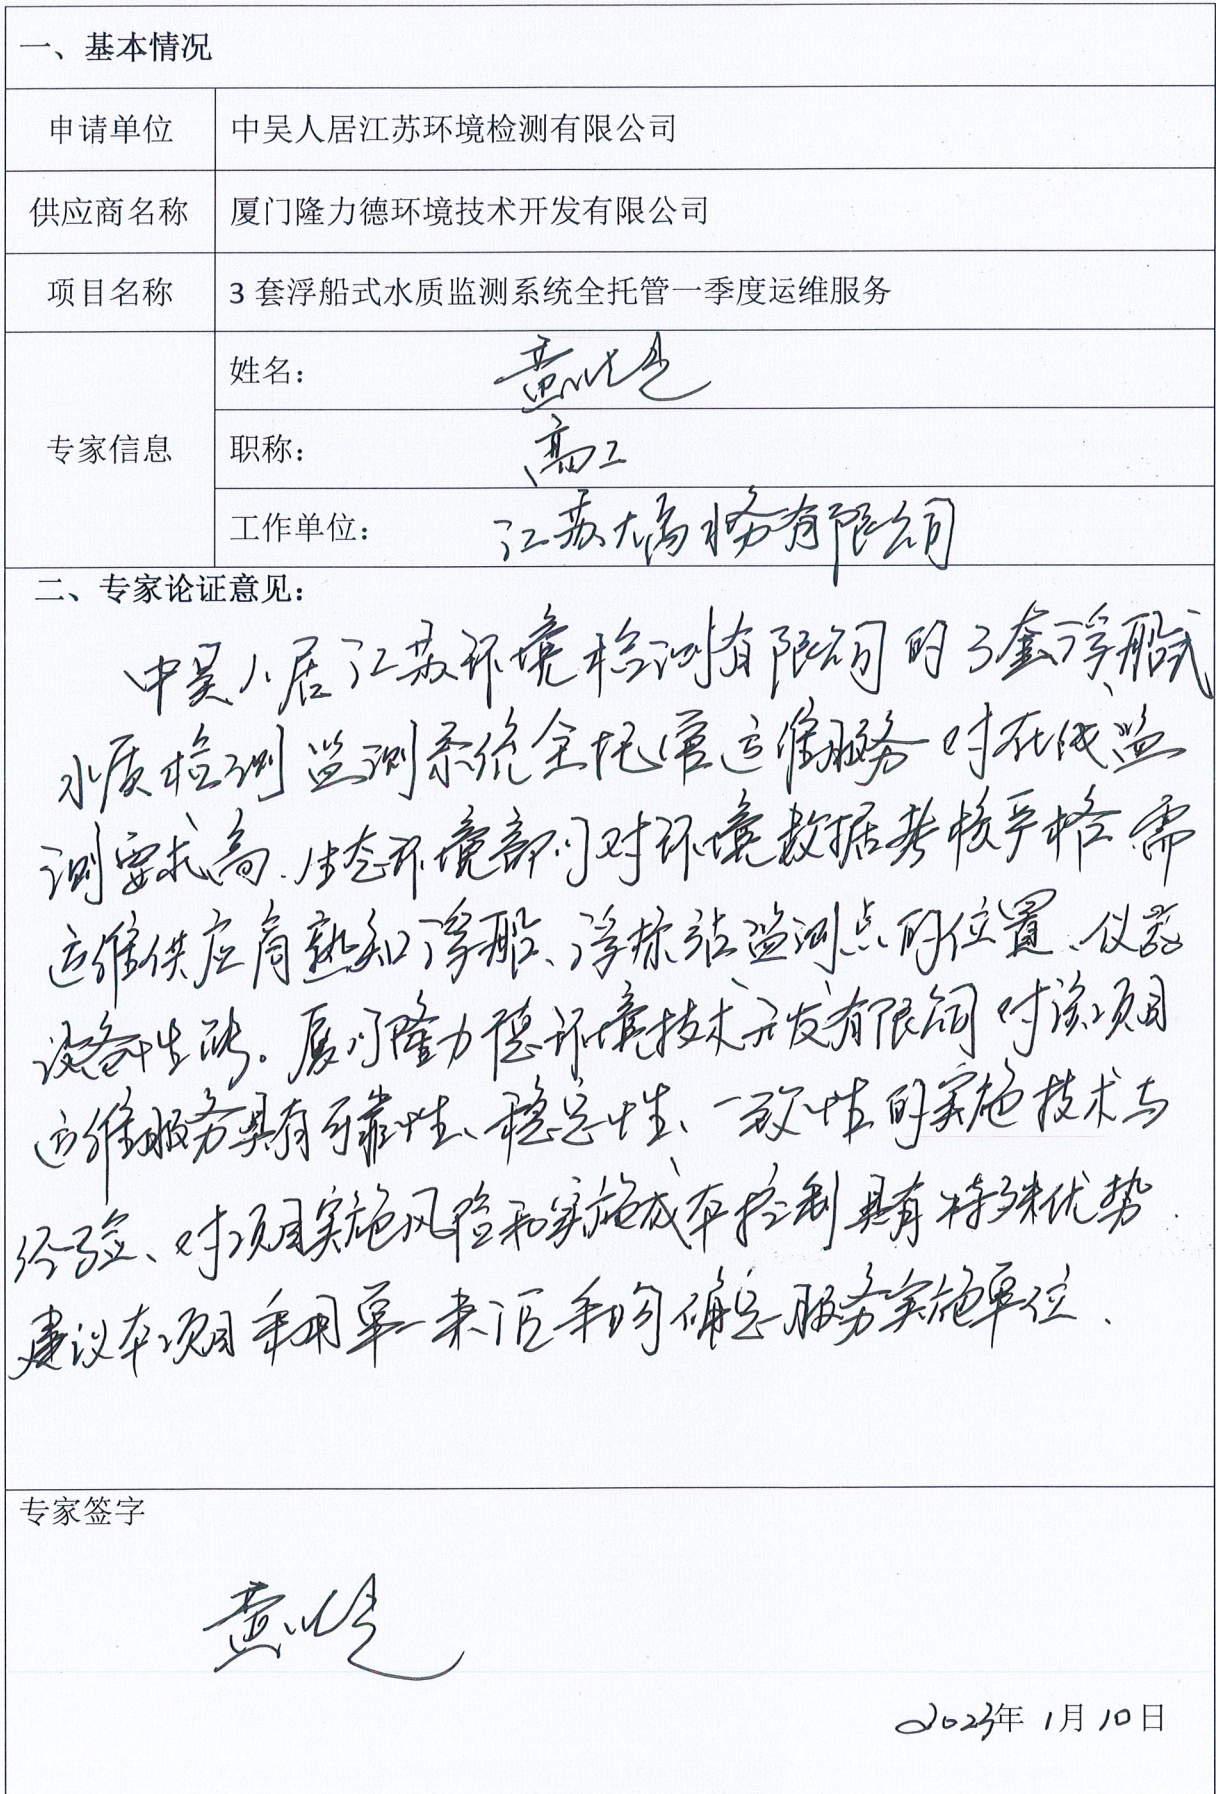 一、基本情况
申请单位 中吴人居江苏环境检测有限公司
供应商名称 厦门隆力德环境技术开发有限公司
项目名称 3套浮船式水质监测系统全托管一季度运维服务
专家信息
姓名： 黄
职称： 高工
工作单位： 江苏大禹水务有限公司
二、专家论证意见：
中吴人居江苏环境检测有限公司的3套浮船式
水质检测监测系统全托管运维服务对在线监
测要求高、生态环境部门对环境数据考核严格、需
运维供应商熟知浮船、浮标站监测点的位置、仪器
设备性能。厦门隆力德环境技术开发有限公司对该项目
运维服务具有可靠性、稳定性、一致性的实施技术与
经验、对项目实施风险和实施成本控制具有特殊优势.
建议本项目采用单一来源采购确定服务实施单位.
专家签字
黄
2023年1月10日